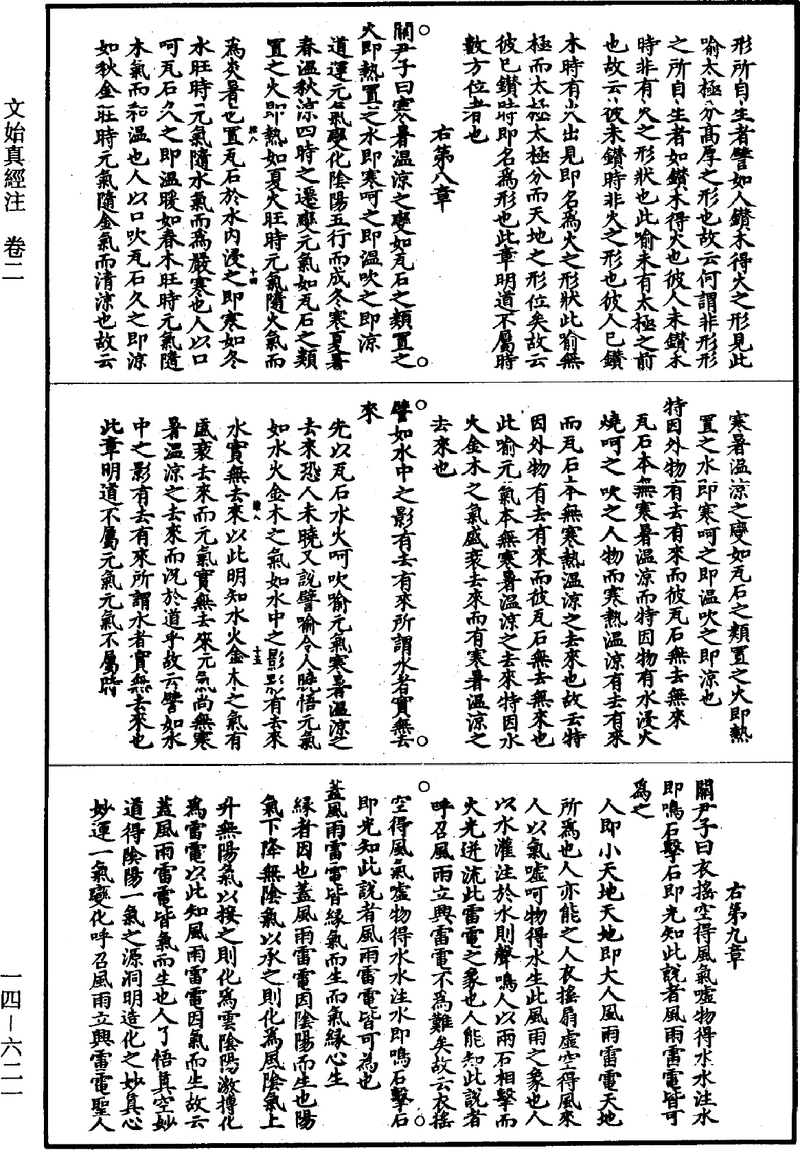 文始真經注　卷二
形所自生者譬如人鑽木得火之形見此
喻太極分高厚之形也故云何謂非形形
之所自生者如鑽木得火也彼人未鑽木
時非有火之形狀也此喻未有太極之前
也故云彼未鑽時非火之形也彼人已鑽
木時有火出見即名為火之形狀此喻無
極而太極太極分而天地之形位矣故云
彼已鑽時即名為形也此章明道不屬時
數方位者也
右第八章
○關尹子曰寒暑溫涼之變如瓦石之類置之○
火即熱置之水即寒呵之即溫吹之即涼
道運元氣變化陰陽五行而成冬寒夏暑
春溫秋涼四時之遷變元氣如瓦石之類
置之火即熱如夏火旺時元氣隨火氣而
為炎暑也置瓦石於水內浸之即寒如冬
水旺時元氣隨水氣而為嚴寒也人以口
呵瓦石久之即溫暖如春木旺時元氣隨
木氣而和溫也人以口吹瓦石久之即涼
如秋金旺時元氣隨金氣而清涼也故云
寒暑溫涼之變如瓦石之類置之火即熱
置之水即寒呵之即溫吹之即涼也
特因外物有去有來而彼瓦石無去無來
瓦石本無寒暑溫涼而特因物有水浸火
燒呵之吹之人物而寒熱溫涼有去有來
而瓦石本無寒熱溫涼之去來也故云特
因外物有去有來而彼瓦石無去無來也
此喻元氣本無寒暑溫涼之去來特因水
火金木之氣盛衰去來而有寒暑溫涼之
去來也
○譬如水中之影有去有來所謂水者實無去○
來
先以瓦石水火呵吹喻元氣寒暑溫涼之
去來恐人未曉又說譬喻令人曉悟元氣
如水火金木之氣如水中之影影有去來
水實無去來以此明知水火金木之氣有
盛衰去來而元氣實無去來元氣尚無寒
暑溫涼之去來而況於道乎故云譬如水
中之影有去有來所謂水者實無去來也
此章明道不屬元氣元氣不屬時
右第九章
關尹子曰衣搖空得風氣噓物得水水注水
即鳴石擊石即光知此說者風雨雷電皆可
為之
人即小天地天地即大人風雨雷電天地
所為也人亦能之人衣搖扇虛空得風來
人以氣噓呵物得水生此風雨之象也人
以水灌注於水則聲鳴人以兩石相擊而
火光迸流此雷電之象也人能知此說者
呼召風雨立興雷電不為難矣故云衣搖
○空得風氣噓物得水水注水即鳴石擊石○
即光知此說者風雨雷電皆可為也
蓋風雨雷電皆緣氣而生而氣緣心生
緣者因也蓋風雨雷電因陰陽而生也陽
氣下降無陰氣以承之則化為風陰氣上
升無陽氣以接之則化為雲陰陽激搏化
為雷電以此知風雨雷電因氣而生故云
蓋風雨雷電皆氣而生也人了悟真空妙
道得陰陽一氣之源洞明造化之妙真心
妙運一氣變化呼召風雨立興雷電聖人
一四－六二一